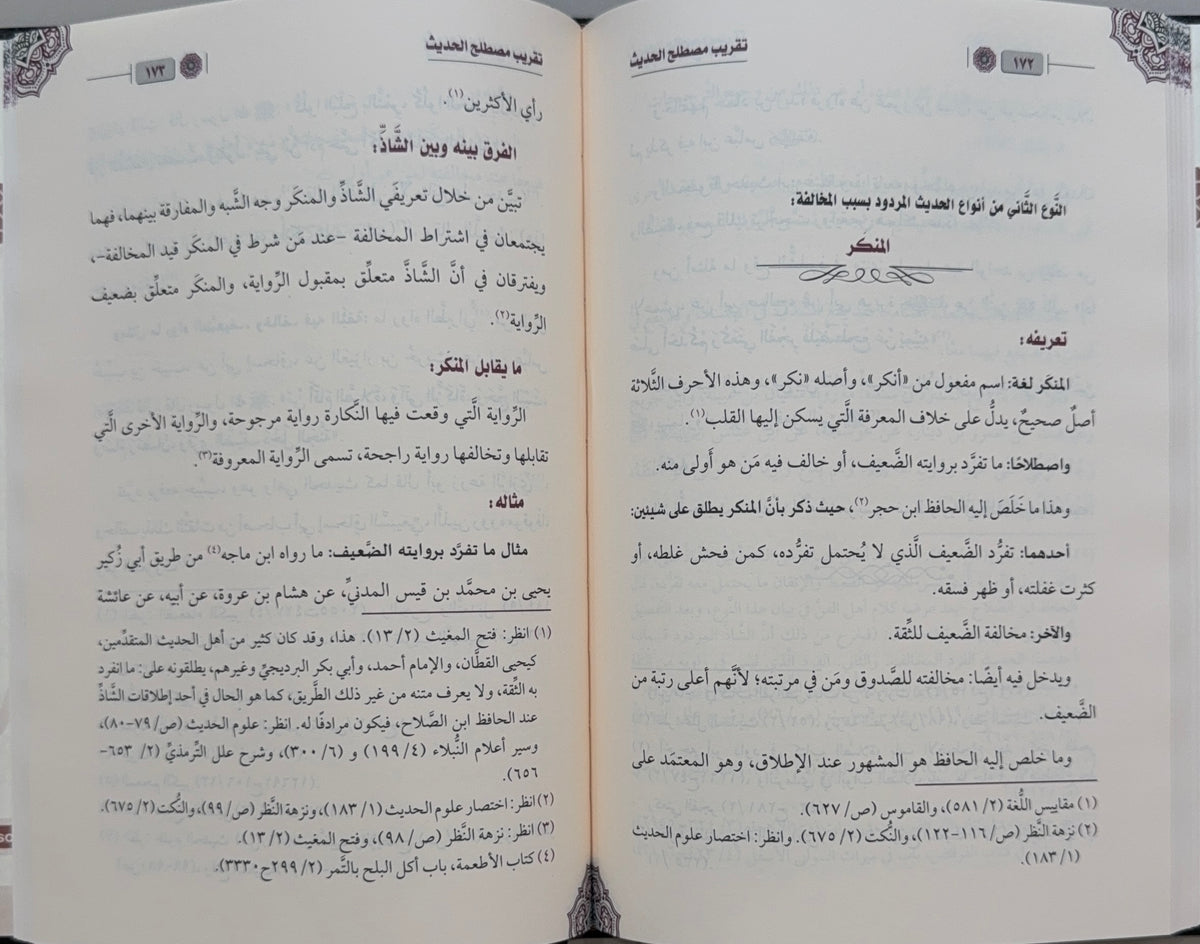 تقريب مصطلح الحديث
١٧٢
النَّوع الثَّاني من أنواع الحديث المردود بسبب المخالفة:
المنكر
تعريفه:
المنكَر لغة: اسم مفعول من «أنكر»، وأصله «نكر»، وهذه الأحرف الثَّلاثة
أصلٌ صحيحٌ، يدلُّ على خلاف المعرفة الَّتي يسكن إليها القلب(١).
واصطلاحًا: ما تفرَّد بروايته الضَّعيف، أو خالف فيه مَن هو أَولى منه.
وهذا ما خَلَصَ إليه الحافظ ابن حجر(٢)، حيث ذكر بأنَّ المنكر يطلق على شيئين:
أحدهما: تفرُّد الضَّعيف الَّذي لا يُحتمل تفرُّده، كمن فحش غلطه، أو
كثرت غفلته، أو ظهر فسقه.
والآخر: مخالفة الضَّعيف للثِّقة.
ويدخل فيه أيضًا: مخالفته للصَّدوق ومَن في مرتبته؛ لأنَّهم أعلى رتبة من
الضَّعيف.
وما خلص إليه الحافظ هو المشهور عند الإطلاق، وهو المعتمَد على
(١) مقاييس اللُّغة (٢/ ٥٨١)، والقاموس (ص/ ٦٢٧).
(٢) نزهة النَّظر (ص/ ١١٦-١٢٢)، والنُّكت (٢/ ٦٧٥). وانظر: اختصار علوم الحديث
(١/ ١٨٣).
تقريب مصطلح الحديث
١٧٣
رأي الأكثرين(١).
الفرق بينه وبين الشَّاذِّ:
تبيَّن من خلال تعريفَي الشَّاذِّ والمنكَر وجه الشَّبه والمفارقة بينهما، فهما
يجتمعان في اشتراط المخالفة -عند مَن شرط في المنكَر قيد المخالفة-،
ويفترقان في أنَّ الشَّاذَّ متعلِّق بمقبول الرِّواية، والمنكَر متعلِّق بضعيف
الرِّواية(٢).
ما يقابل المنكَر:
الرِّواية الَّتي وقعت فيها النَّكارة رواية مرجوحة، والرِّواية الأخرى الَّتي
تقابلها وتخالفها رواية راجحة، تسمى الرِّواية المعروفة(٣).
مثاله:
مثال ما تفرَّد بروايته الضَّعيف: ما رواه ابن ماجه(٤) من طريق أبي زُكير
يحيى بن محمَّد بن قيس المدنيِّ، عن هشام بن عروة، عن أبيه، عن عائشة
(١) انظر: فتح المغيث (٢/ ١٣). هذا، وقد كان كثير من أهل الحديث المتقدِّمين،
كيحيى القطَّان، والإمام أحمد، وأبي بكر البرديجيِّ وغيرهم، يطلقونه على: ما انفرد
به الثِّقة، ولا يعرف متنه من غير ذلك الطَّريق، كما هو الحال في أحد إطلاقات الشَّاذِّ
عند الحافظ ابن الصَّلاح، فيكون مرادفًا له. انظر: علوم الحديث (ص/ ٧٩-٨٠)،
وسير أعلام النُّبلاء (٤/ ١٩٩) و (٦/ ٣٠٠)، وشرح علل التِّرمذيِّ (٢/ ٦٥٣-
٦٥٦).
(٢) انظر: اختصار علوم الحديث (١/ ١٨٣)، ونزهة النَّظر (ص/ ٩٩)، والنُّكت (٢/ ٦٧٥).
(٣) انظر: نزهة النَّظر (ص/ ٩٨)، وفتح المغيث (٢/ ١٣).
(٤) كتاب الأطعمة، باب أكل البلح بالتَّمر (٢/ ٢٩٩ح٣٣٣٠).